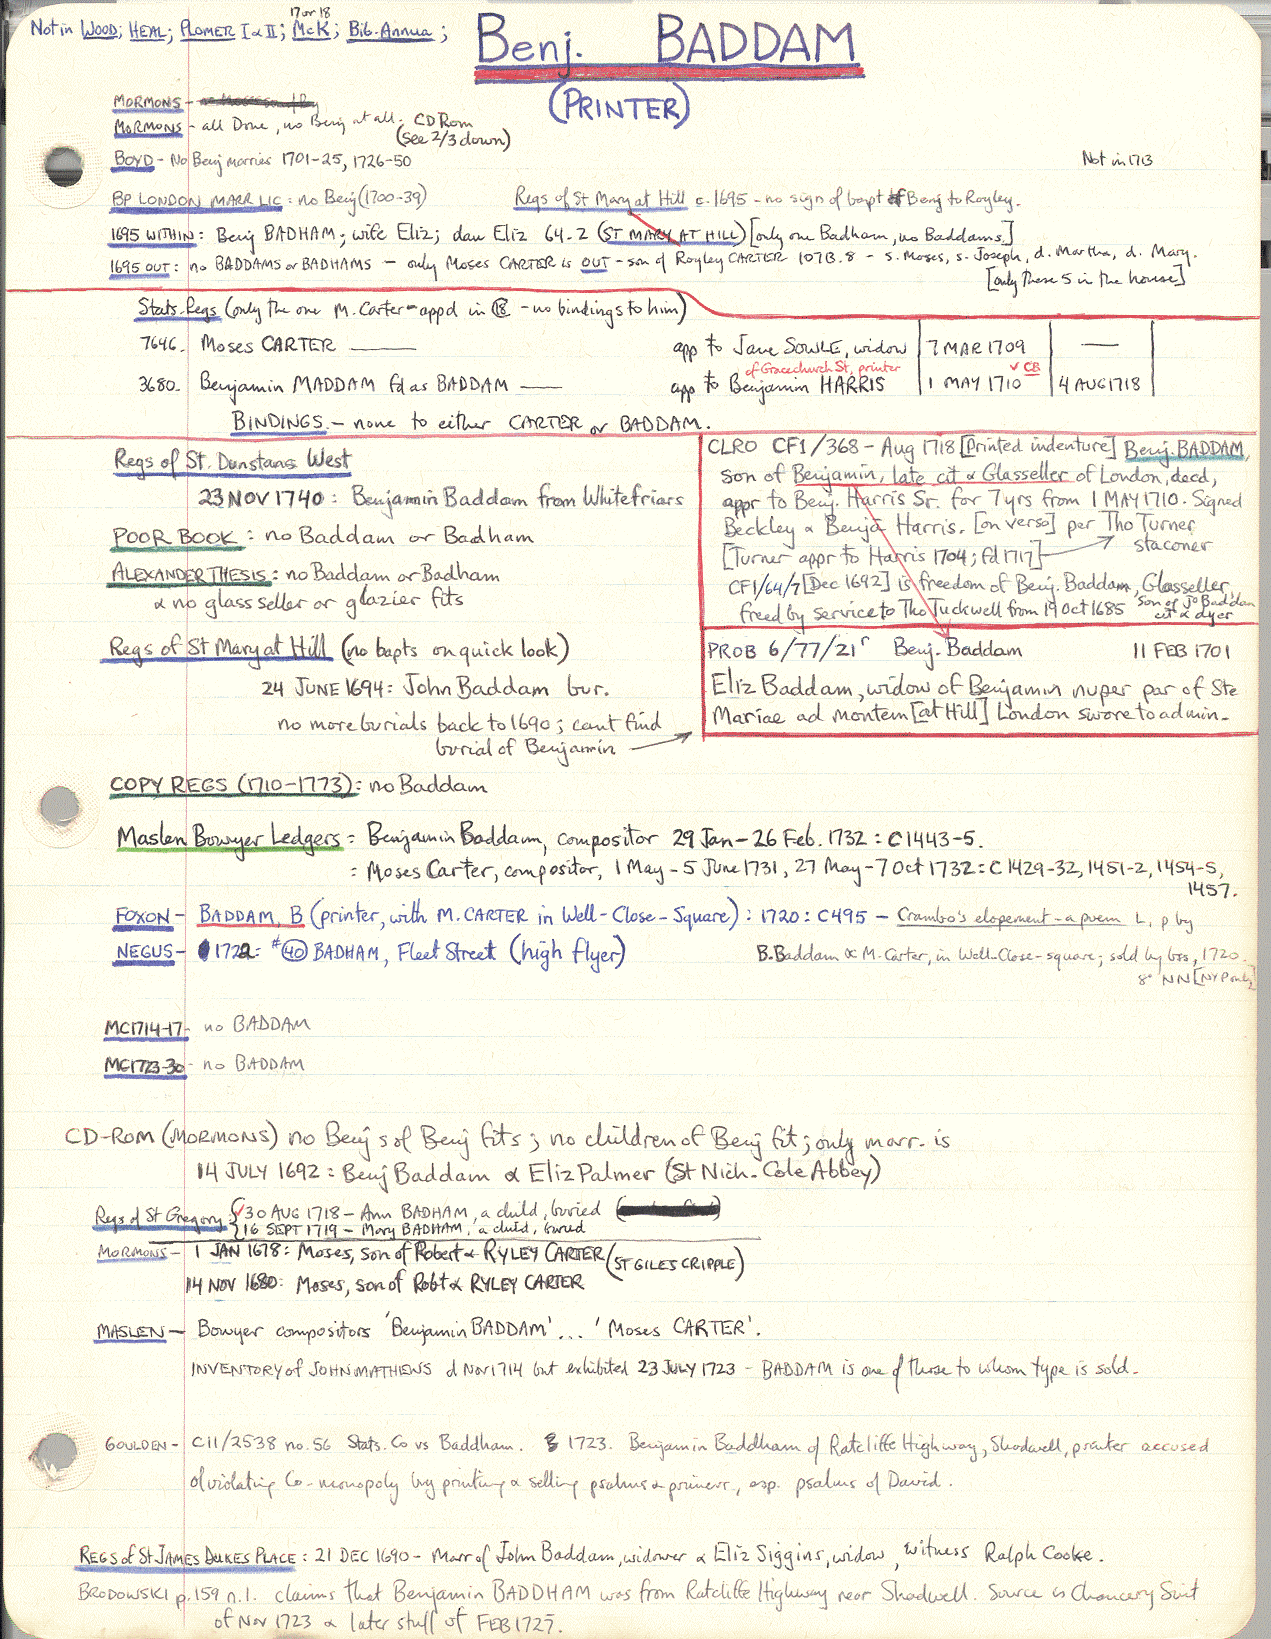 17 or 18
Not in WOOD; HEAL; PLOMER I & II; McK; Bib. Annua;
Benj. BADDAM
(PRINTER)
MORMONS -
MORMONS - all Done, no Benj at all. CD Rom
(see 2/3 down)
BOYD - No Benj marries 1701-25, 1726-50
Not in 1713
BP LONDON MARR LIC: no Benj (1700-39)
Regs of St Mary at Hill c. 1695 - no sign of bapt of Benj to Royley.
1695 WITHIN: Benj BADHAM; wife Eliz; dau Eliz 64.2 (ST MARY AT HILL) [only one Badham, no Baddams]
1695 OUT: no BADDAMS or BADHAMS - only Moses CARTER is OUT - son of Royley CARTER 107B.8 - s. Moses, s. Joseph, d. Martha, d. Mary.
[only these 5 in the house]
Stats. Regs (only the one M. Carter - appd in - no bindings to him)
7646. Moses CARTER —— app to Jane SOWLE, widow 7 MAR 1709 —
of Gracechurch St, printer
✓ CB
3680. Benjamin MADDAM fd as BADDAM — app to Benjamin HARRIS 1 MAY 1710 4 AUG 1718
BINDINGS - none to either CARTER or BADDAM.
Regs of St. Dunstans West
23 NOV 1740: Benjamin Baddam from Whitefriars
POOR BOOK: no Baddam or Badham
ALEXANDER THESIS: no Baddam or Badham
& no glass seller or glazier fits
Regs of St Mary at Hill (no bapts on quick look)
24 JUNE 1694: John Baddam bur.
no more burials back to 1690; cant find
burial of Benjamin
CLRO CF1/368 - Aug 1718 [Printed indenture] Benj. BADDAM,
son of Benjamin, late cit & Glasseller of London, decd,
appr to Benj. Harris Sr. for 7 yrs from 1 MAY 1710. Signed
Beckley & Benja Harris. [on verso] per Tho Turner
staconer
[Turner appr to Harris 1704; fd 1717]
CF1/64/7 [Dec 1692] is freedom of Benj. Baddam, Glasseller,
freed by service to Tho Tuckwell from 19 Oct 1685 son of Jo Baddam
cit & dyer
PROB 6/77/21r Benj. Baddam 11 FEB 1701
Eliz Baddam, widow of Benjamin nuper par of Ste
Mariae ad montem [at Hill] London swore to admin.
COPY REGS (1710-1773): no Baddam
Maslen Bowyer Ledgers = Benjamin Baddam, compositor 29 Jan - 26 Feb. 1732: C1443-5.
: Moses Carter, compositor, 1 May - 5 June 1731, 27 May - 7 Oct 1732: C1429-32, 1451-2, 1454-5,
1457.
FOXON - BADDAM, B (printer, with M. CARTER in Well-Close-Square): 1720: C495 - Crambo's elopement - a poem L, p by
B. Baddam & M. Carter, in Well-Close-square; sold by bss, 1720.
8° NN [NYP only]
NEGUS - 1722: #40 BADHAM, Fleet Street (high flyer)
MC1714-17 - no BADDAM
MC1723-30 - no BADDAM
CD-ROM (MORMONS) no Benj s of Benj fits; no children of Benj fit; only marr. is
14 JULY 1692: Benj Baddam & Eliz Palmer (St Nich. Cole Abbey)
Regs of St Gregory: 30 AUG 1718 - Ann BADHAM, a child, buried
16 SEPT 1719 - Mary BADHAM, a child, buried
MORMONS - 1 JAN 1678: Moses, son of Robert & RYLEY CARTER (ST GILES CRIPPLE)
14 NOV 1680: Moses, son of Robt & RYLEY CARTER
MASLEN - Bowyer compositors 'Benjamin BADDAM'... 'Moses CARTER'.
INVENTORY of JOHN MATHEWS d NOV 1714 but exhibited 23 JULY 1723 - BADDAM is one of those to whom type is sold.
GOULDEN - C11/2538 no. 56 Stats. Co vs Baddham. 1723. Benjamin Baddham of Ratcliffe Highway, Shadwell, printer accused
of violating Co. monopoly by printing & selling psalms & primers, esp. psalms of David.
REGS of St JAMES DUKES PLACE: 21 DEC 1690 - Marr of John Baddam, widower & Eliz Siggins, widow, witness Ralph Cooke.
BRODOWSKI p. 159 n.1. claims that Benjamin BADDHAM was from Ratcliffe Highway near Shadwell. Source is Chancery Suit
of Nov 1723 & later stuff of FEB 1725.